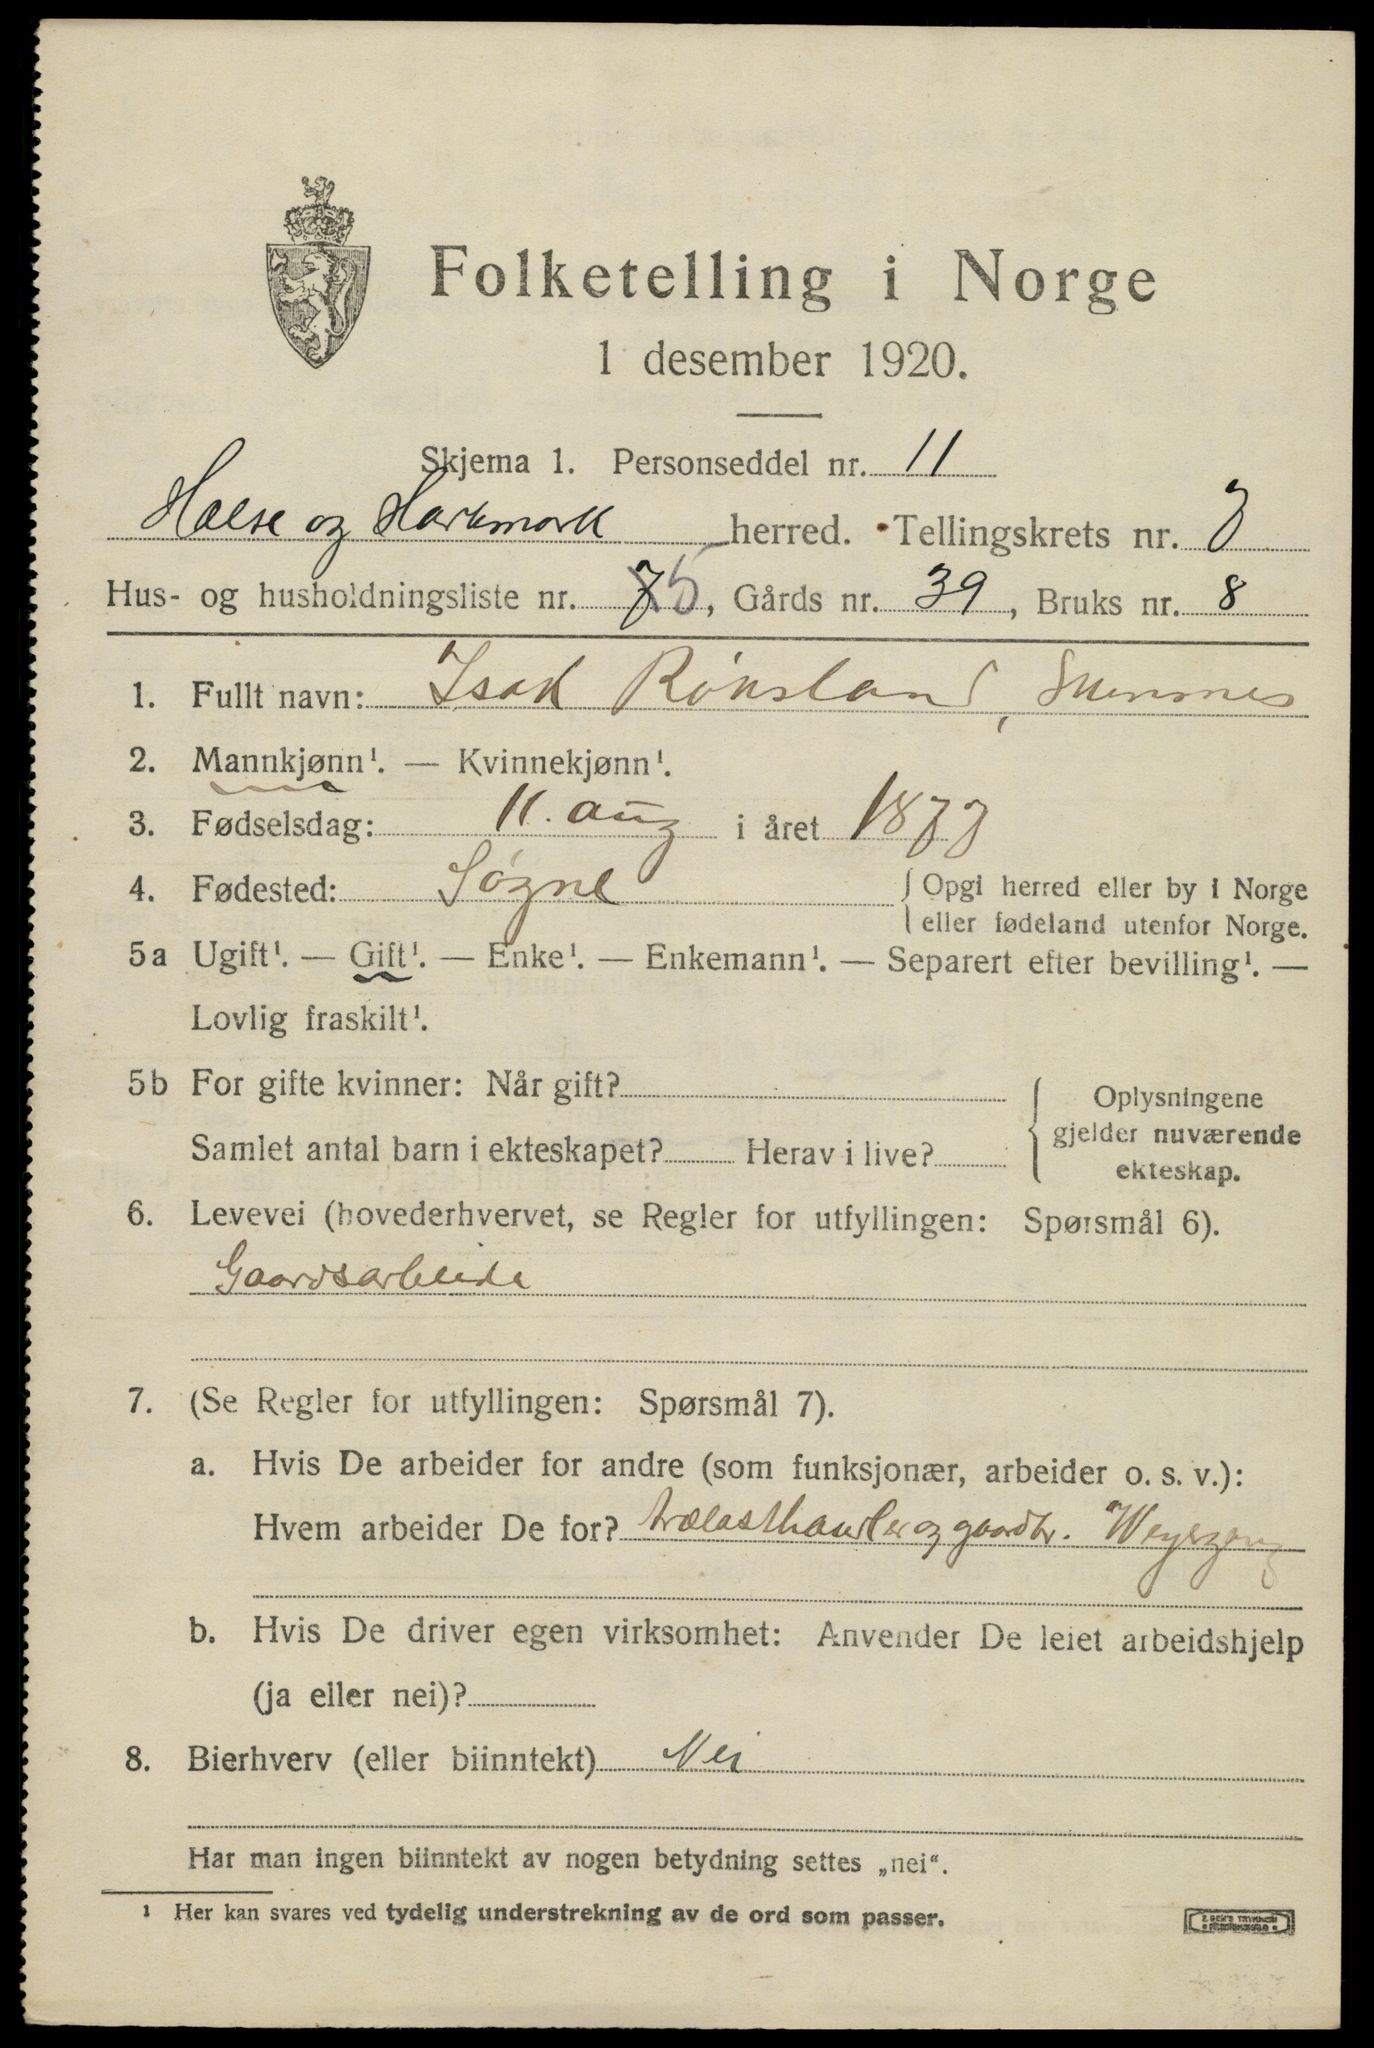 Folketelling i Norge
1 desember 1920.
Skjema 1. Personseddel nr. 11
Halse og Harkmark herred. Tellingskrets nr. 7
Hus- og husholdningsliste nr. 5, Gårds nr. 39, Bruks nr. 8
1. Fullt navn: Isak
2. Mannkjønn¹. — Kvinnekjønn¹.
3. Fødselsdag: 11. aug i året 1877
4. Fødested: Søgne { Opgi herred eller by i Norge
eller fødeland utenfor Norge.
5a Ugift¹. — Gift¹. — Enke¹. — Enkemann¹. — Separert efter bevilling¹. —
Lovlig fraskilt¹.
5b For gifte kvinner: Når gift?
Samlet antal barn i ekteskapet? Herav i live?
Oplysningene
gjelder nuværende
ekteskap.
6. Levevei (hovederhvervet, se Regler for utfyllingen: Spørsmål 6).
Gaardsarbeide
7. (Se Regler for utfyllingen: Spørsmål 7).
a. Hvis De arbeider for andre (som funksjonær, arbeider o. s. v.):
Hvem arbeider De for? trælasthandler og gaardbr.
b. Hvis De driver egen virksomhet: Anvender De leiet arbeidshjelp
(ja eller nei)?
8. Bierhverv (eller biinntekt) Nei
Har man ingen biinntekt av nogen betydning settes „nei“.
¹ Her kan svares ved tydelig understrekning av de ord som passer.